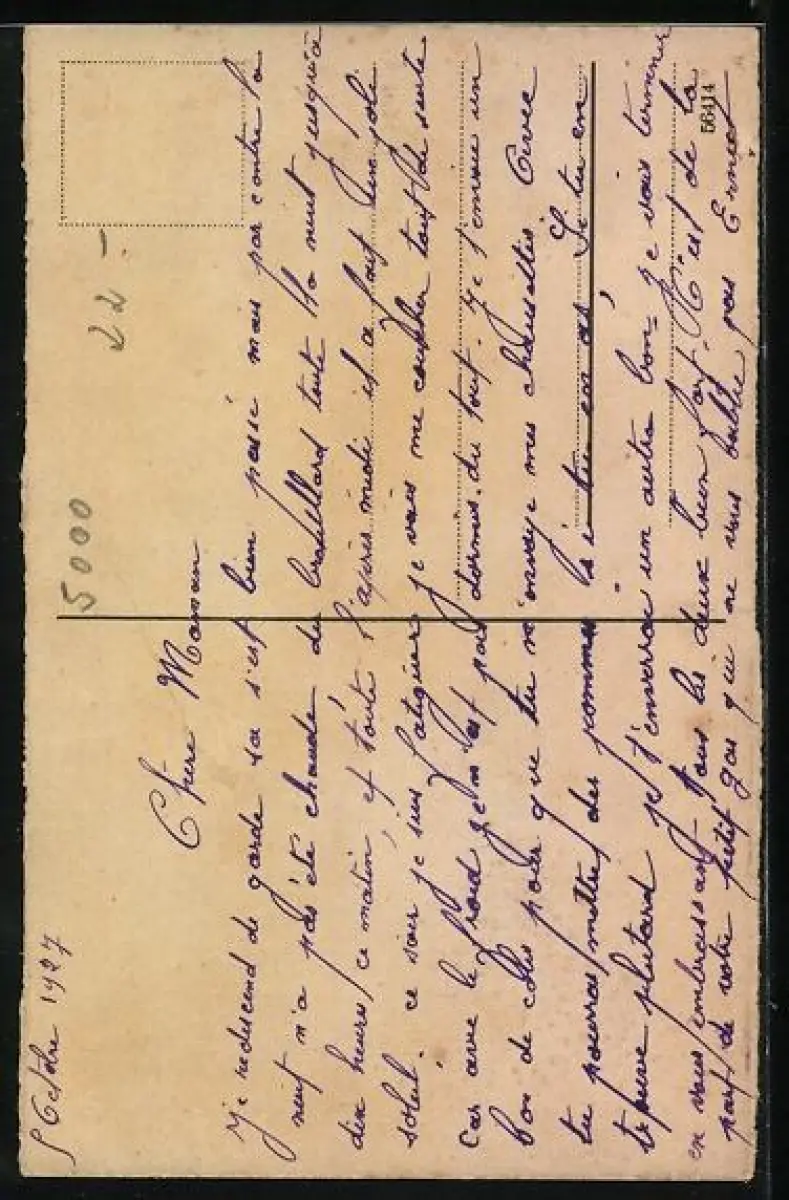 9 Octobre 1927
5000
22-
Chère Maman
Je redescend de garde sa s'est bien passé mais par contre la
nuit n'a pas été chaude du brouillard toute la nuit jusqu'à
dix heures ce matin, et toute l'après midi il a fait un joli
soleil. ce soir je suis fatiguer je vais me coucher tout de suite
Car avec le froid je n'est pas dormis du tout. Je t'envoie un
bon de colis pour que tu m'envoye mes chaussettes Avec
tu pourras mettre des pommes si tu en as' Si tu en
trouve plutard je t'enverrai un autre bon= Je vais terminer
en vous embrassant tous les deux bien fort. C'est de la
part de votre petit gas qui ne vous oublie pas Ernest
56414